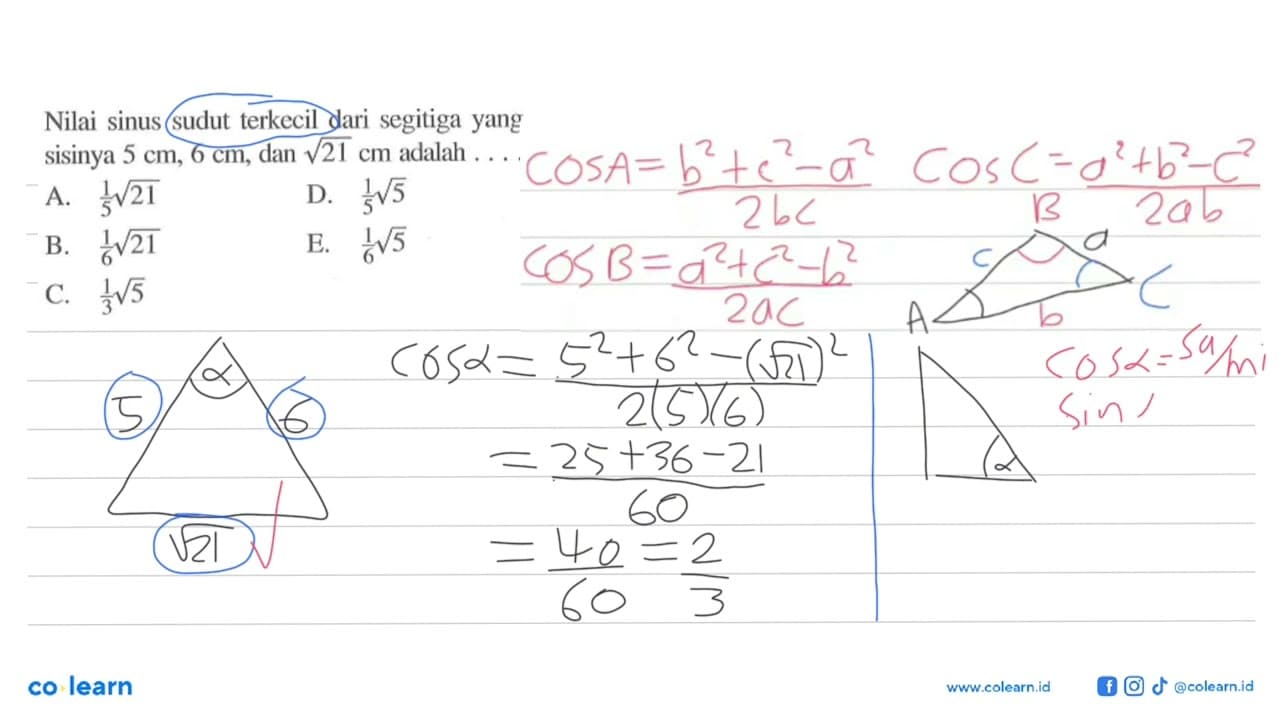 Nilai sinus sudut terkecil dari segitiga yang
sisinya 5 cm, 6 cm, dan √21 cm adalah . . . .
A. 1/5 √21
D. 1/5 √5
B. 1/6 √21
E. 1/6 √5
C. 1/3 √5
COSA = b² + c² - a² / 2bc
COS C = a² + b² - c² / 2ab
COS B = a² + c² - b² / 2ac
B
c
a
A
b
C
α
5
6
√21
cosα = 5² + 6² - (√21)² / 2(5)(6)
= 25 + 36 - 21 / 60
= 40 / 60 = 2 / 3
cosα = sa/mi
sin
α
co learn
www.colearn.id
@colearn.id